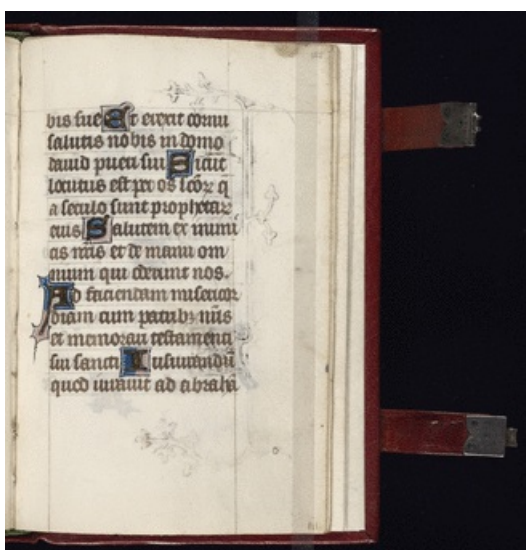 bis sue Et erexit cornu
salutis nobis in domo
dauid pueri sui Sicut
locutus est per os scõꝝ q
a seculo sunt prophetaꝝ
eius Salutem ex inimi
cis nr̃is et de manu om
nium qui oderunt nos.
Ad faciendam misericor
diam cum patribꝫ nr̃is
et memorari testamenti
sui sancti Iusiurandũ
quod iurauit ad abrahã